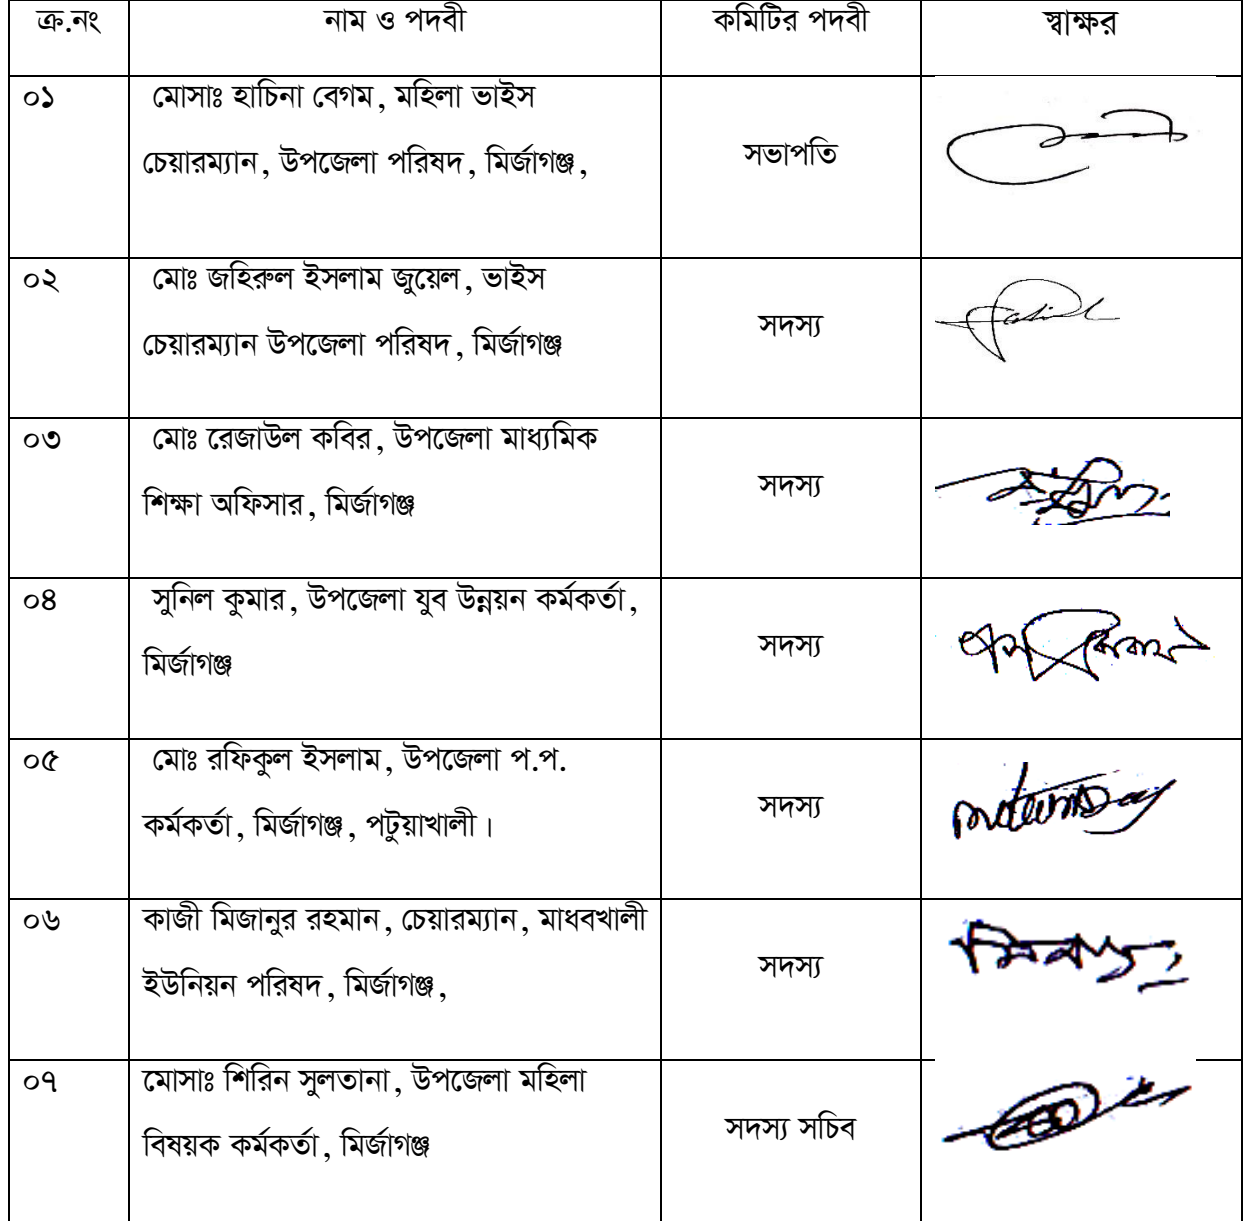 ক্র.নং নাম ও পদবী কমিটির পদবী স্বাক্ষর
০১ মোসাঃ হাচিনা বেগম, মহিলা ভাইস
চেয়ারম্যান, উপজেলা পরিষদ, মির্জাগঞ্জ,
সভাপতি
০২ মোঃ জহিরুল ইসলাম জুয়েল, ভাইস
চেয়ারম্যান উপজেলা পরিষদ, মির্জাগঞ্জ
সদস্য
০৩ মোঃ রেজাউল কবির, উপজেলা মাধ্যমিক
শিক্ষা অফিসার, মির্জাগঞ্জ
সদস্য
০৪ সুনিল কুমার, উপজেলা যুব উন্নয়ন কর্মকর্তা,
মির্জাগঞ্জ
সদস্য
০৫ মোঃ রফিকুল ইসলাম, উপজেলা প.প.
কর্মকর্তা, মির্জাগঞ্জ, পটুয়াখালী।
সদস্য
০৬ কাজী মিজানুর রহমান, চেয়ারম্যান, মাধবখালী
ইউনিয়ন পরিষদ, মির্জাগঞ্জ,
সদস্য
০৭ মোসাঃ শিরিন সুলতানা, উপজেলা মহিলা
বিষয়ক কর্মকর্তা, মির্জাগঞ্জ
সদস্য সচিব